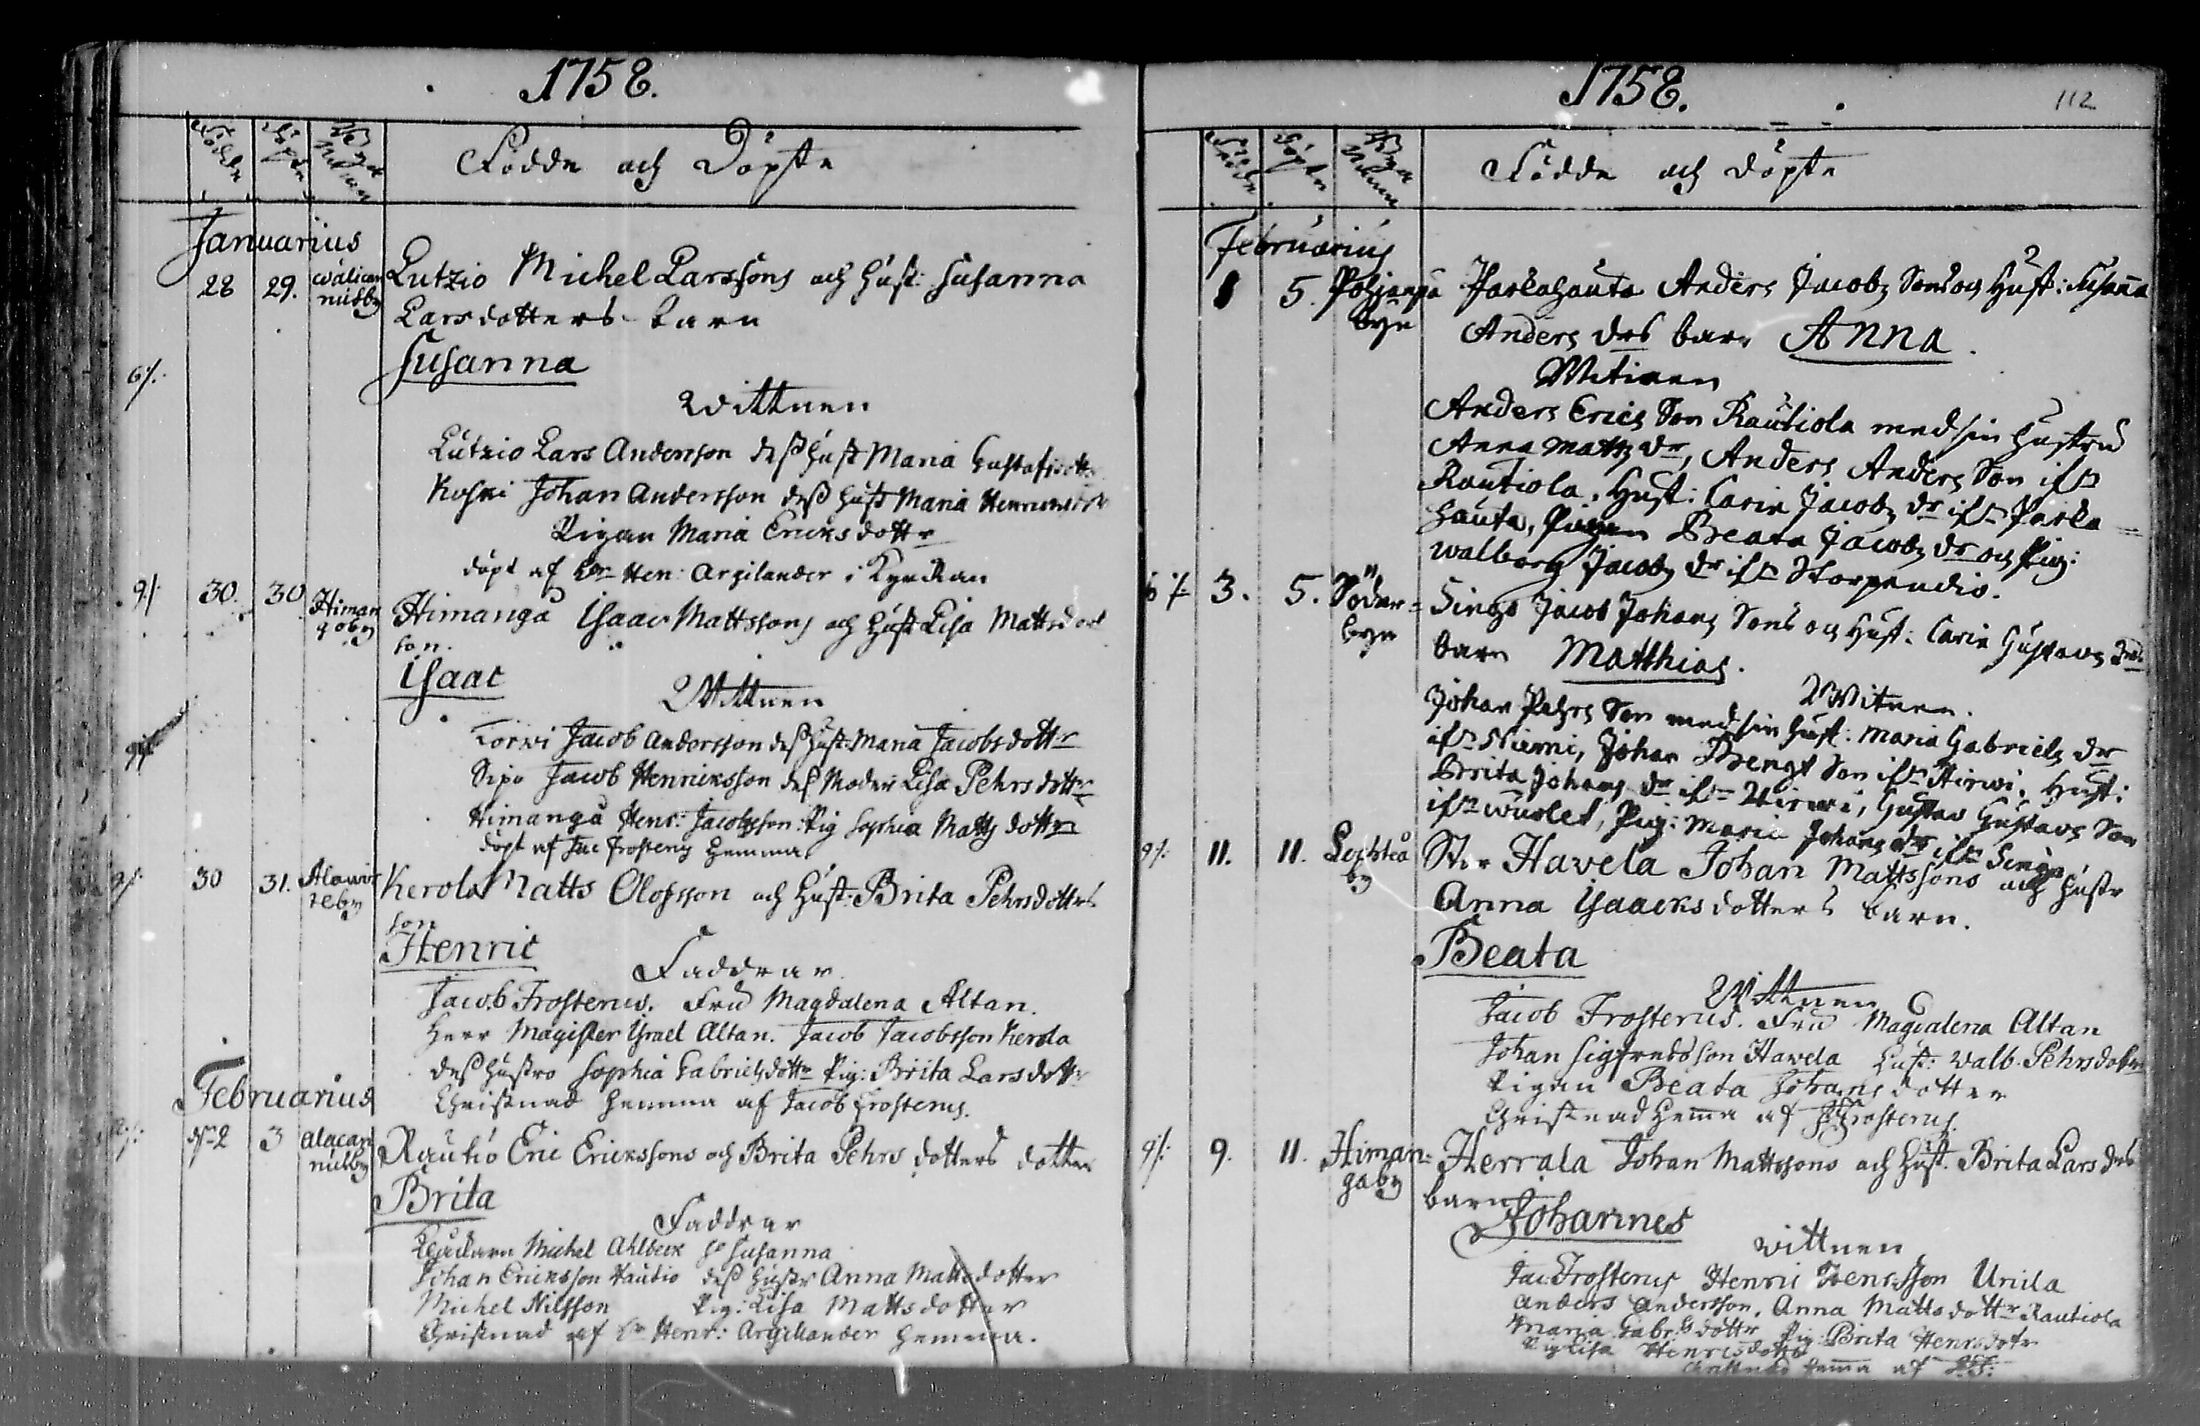 1758.
Födde
Döpte
Byarnes Namn
Födde och Döpte
Januarius
28 29. Wälican nusby Lutzio Michel Larssons och Hust: Susanna
Larsdotters barn
6/. Susanna
Wittnen
Lutzio Lars Andersson dess Hust Maria Gustafsdottr
Koski Johan Andersson dess Hust Maria Henricsdottr
Pigan Maria Ericksdottr
döpt af Hr Hen: Argilander i Kyrckan
9/. 30. 30 Himan goby Himanga Isaac Mattssons och Hust Lisa Mattsdott
son.
Isaac
Wittnen
Torvi Jacob Andersson dess Hust: Maria Jacobsdottr
Sipo Jacob Henricksson des Moder Lisa Pehrsdottr
Himanga Henr: Jacobsson: Pig Sophia Matts dottr
döpt af Jac Frosterus hemma
9/. 30 31. Alawir reby Kerola Matts Olofsson och Hust: Brita Pehrsdotters
son
Henric
Faddrar
Jacob Frosterus. Fru Magdalena Altan.
Herr Magister Israel Altan. Jacob Jacobsson Kerola
dess Hustro Sophia Gabrielsdottr Pig: Brita Larsdottr
Christnad hemma af Jacob Frosterus.
Februarius
2 3 alacan nusby Rautio Eric Erickssons och Brita Pehrs dotters dotter
Brita
Faddrar
Michel Ahlbeck Susanna
Johan Ericksson Rautio dess Hustr Anna Mattsdotter
Michel Nilsson Pig: Lisa Mattsdotter
Christnad af Hr Henr: Argillander hemma.
1758.
112
Födde
Döpte
Byarnes Namn
Födde och döpte
Februarius
1 5. Pohjanpä byn Parkahauta Anders Jacobs Sons och Hust: Susanna
Anders drs barn Anna.
Witinen
Anders Erics Son Rautiola med sin Hustru
Anna Matts dr, Anders Anders Son ifrn
Rautiola, Hust: Carin Jacobs dr ifrn Parka=
hauta, Pigan Beata Jacobs dr och Pig:
Walborg Jacobs dr ifrn Storpendio.
6/. 3. 5. Söder= byn Singo Jacob Johans Sons och Hust: Carin Gustavs drs
barn Matthias.
Witnen.
Johan Pehrs Son med sin Hust: Maria Gabriels dr
ifrn Niemi, Johan Bengt Son ifrn Hirwi. Hust:
Brita Johans dr ifrn Hirwi, Gustav Gustavs Son
ifrn Wuolet, Pig: Maria Johans dr ifrn Singo.
9/. 11. 11. Lochteå by Stor Havela Johan Mattssons och Hustr
Anna Isaacks dotters barn.
Beata
Wittnen
Jacob Frosterus. Fru Magdalena Altan
Johan Sigfredsson Hawela Hust: Walb. Pehrsdotter
Pigan Beata Johans dotter
Christnad hemma af J Frosterus.
9/. 9. 11. Himan= gaby Herrala Johan Mattssons och Hust. Brita Lars drs
barn
Johannes
wittnen
Jac Frosterus Henric Henrsson Unila
Anders Andersson, Anna Matts dottr Rautiola
Maria Gabr:s dottr Pig: Brita Henrsdotr
Pig Lisa Henricsdottr
Christnad hemma af J:F: